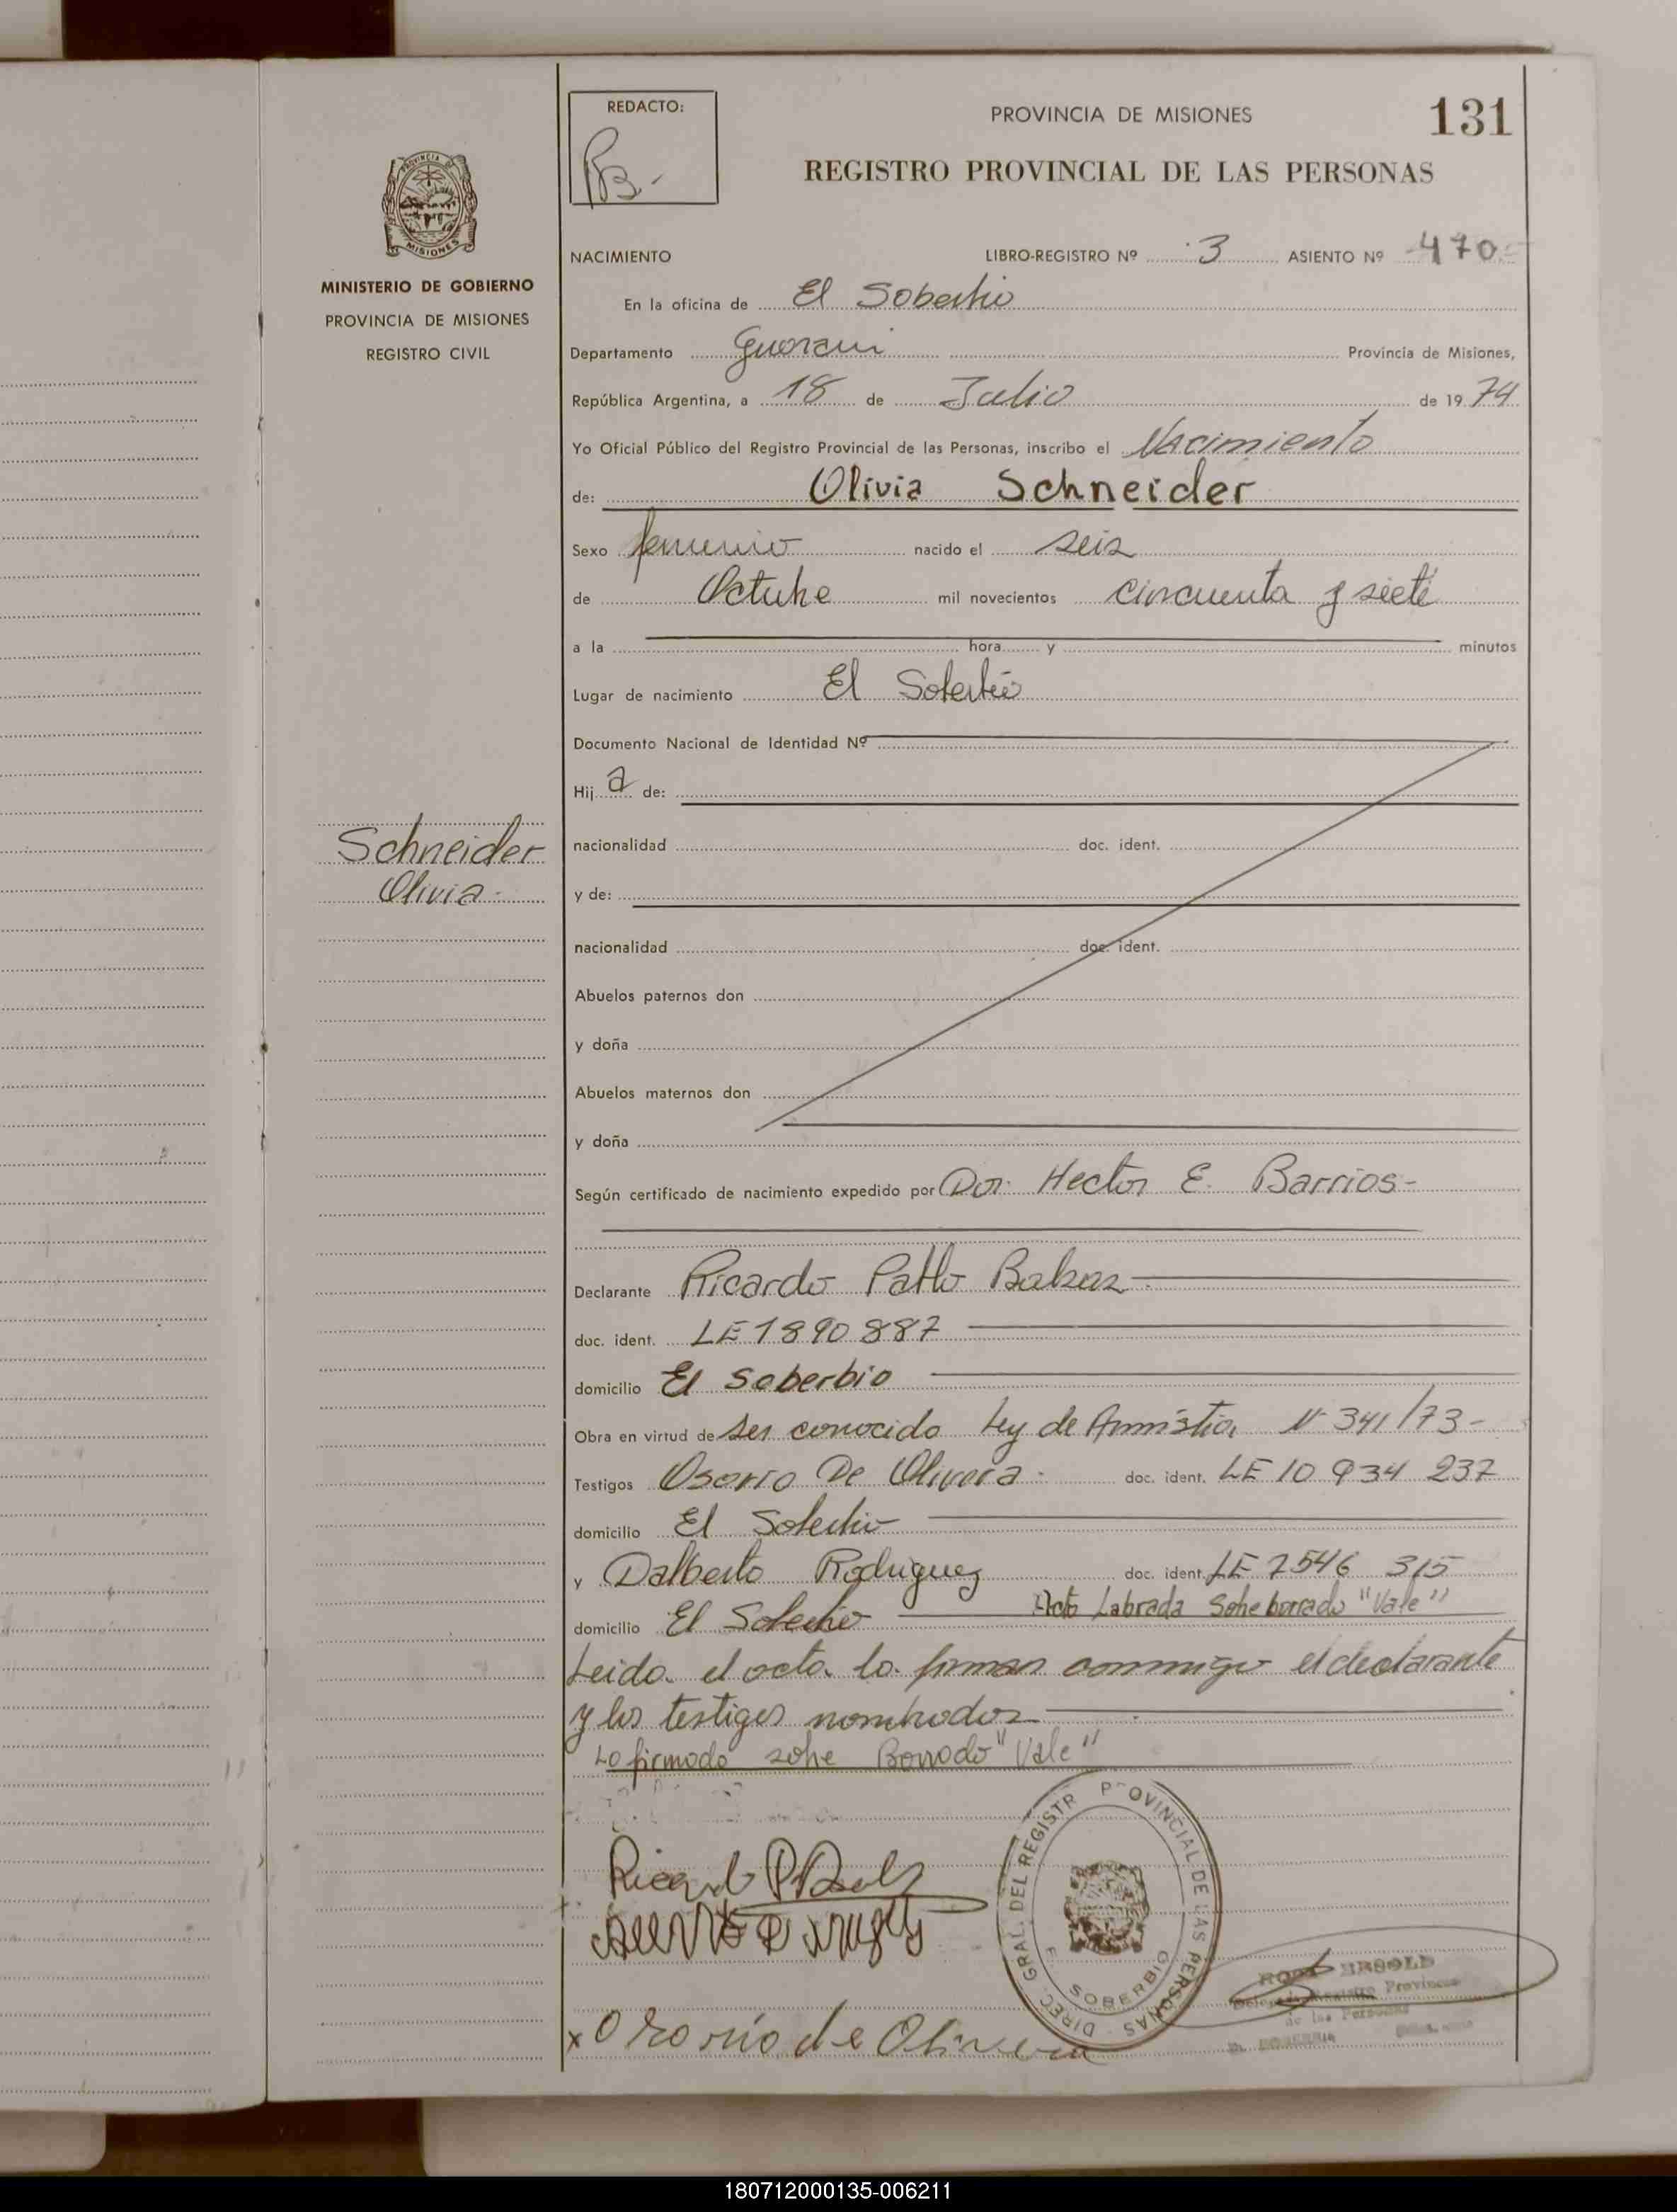 REDACTO:
PROVINCIA DE MISIONES
131
REGISTRO PROVINCIAL DE LAS PERSONAS
PROVINCIA DE
MISIONES
MINISTERIO DE GOBIERNO
PROVINCIA DE MISIONES
REGISTRO CIVIL
NACIMIENTO LIBRO-REGISTRO Nº 3 ASIENTO Nº 470
En la oficina de El Soberbio
Departamento Guarani Provincia de Misiones,
República Argentina, a 18 de Julio de 1974
Yo Oficial Público del Registro Provincial de las Personas, inscribo el Nacimiento
de: Olivia Schneider
Sexo femenino nacido el seis
de Octubre mil novecientos cincuenta y siete
a la hora y minutos
Lugar de nacimiento El Soberbio
Documento Nacional de Identidad Nº
Hij a de:
Schneider
Olivia
nacionalidad doc. ident.
y de:
nacionalidad doc. ident.
Abuelos paternos don
y doña
Abuelos maternos don
y doña
Según certificado de nacimiento expedido por Dor. Hector E. Barrios-
Declarante Ricardo Pablo
doc. ident. LE 1890 887
domicilio El Soberbio
Obra en virtud de ser conocido Ley de Amnistia Nº 341/73-
Testigos Osorio De Olivera doc. ident. LE 10 934 237
domicilio El Soberbio
y Dalberto Rodriguez doc. ident. LE 7546 315
domicilio El Soberbio Acto Labrada Sobre borrado "Vale"
Leida el acta la firman conmigo el declarante
y los testigos nombrados
Lo firmado sobre Borrado "Vale"
DIREC. GRAL. DEL REGISTR PROVINCIAL DE LAS PERSONAS
E. SOBERBIO
Registro Provincial
de las Personas
x Ozorio de Olivera
180712000135-006211